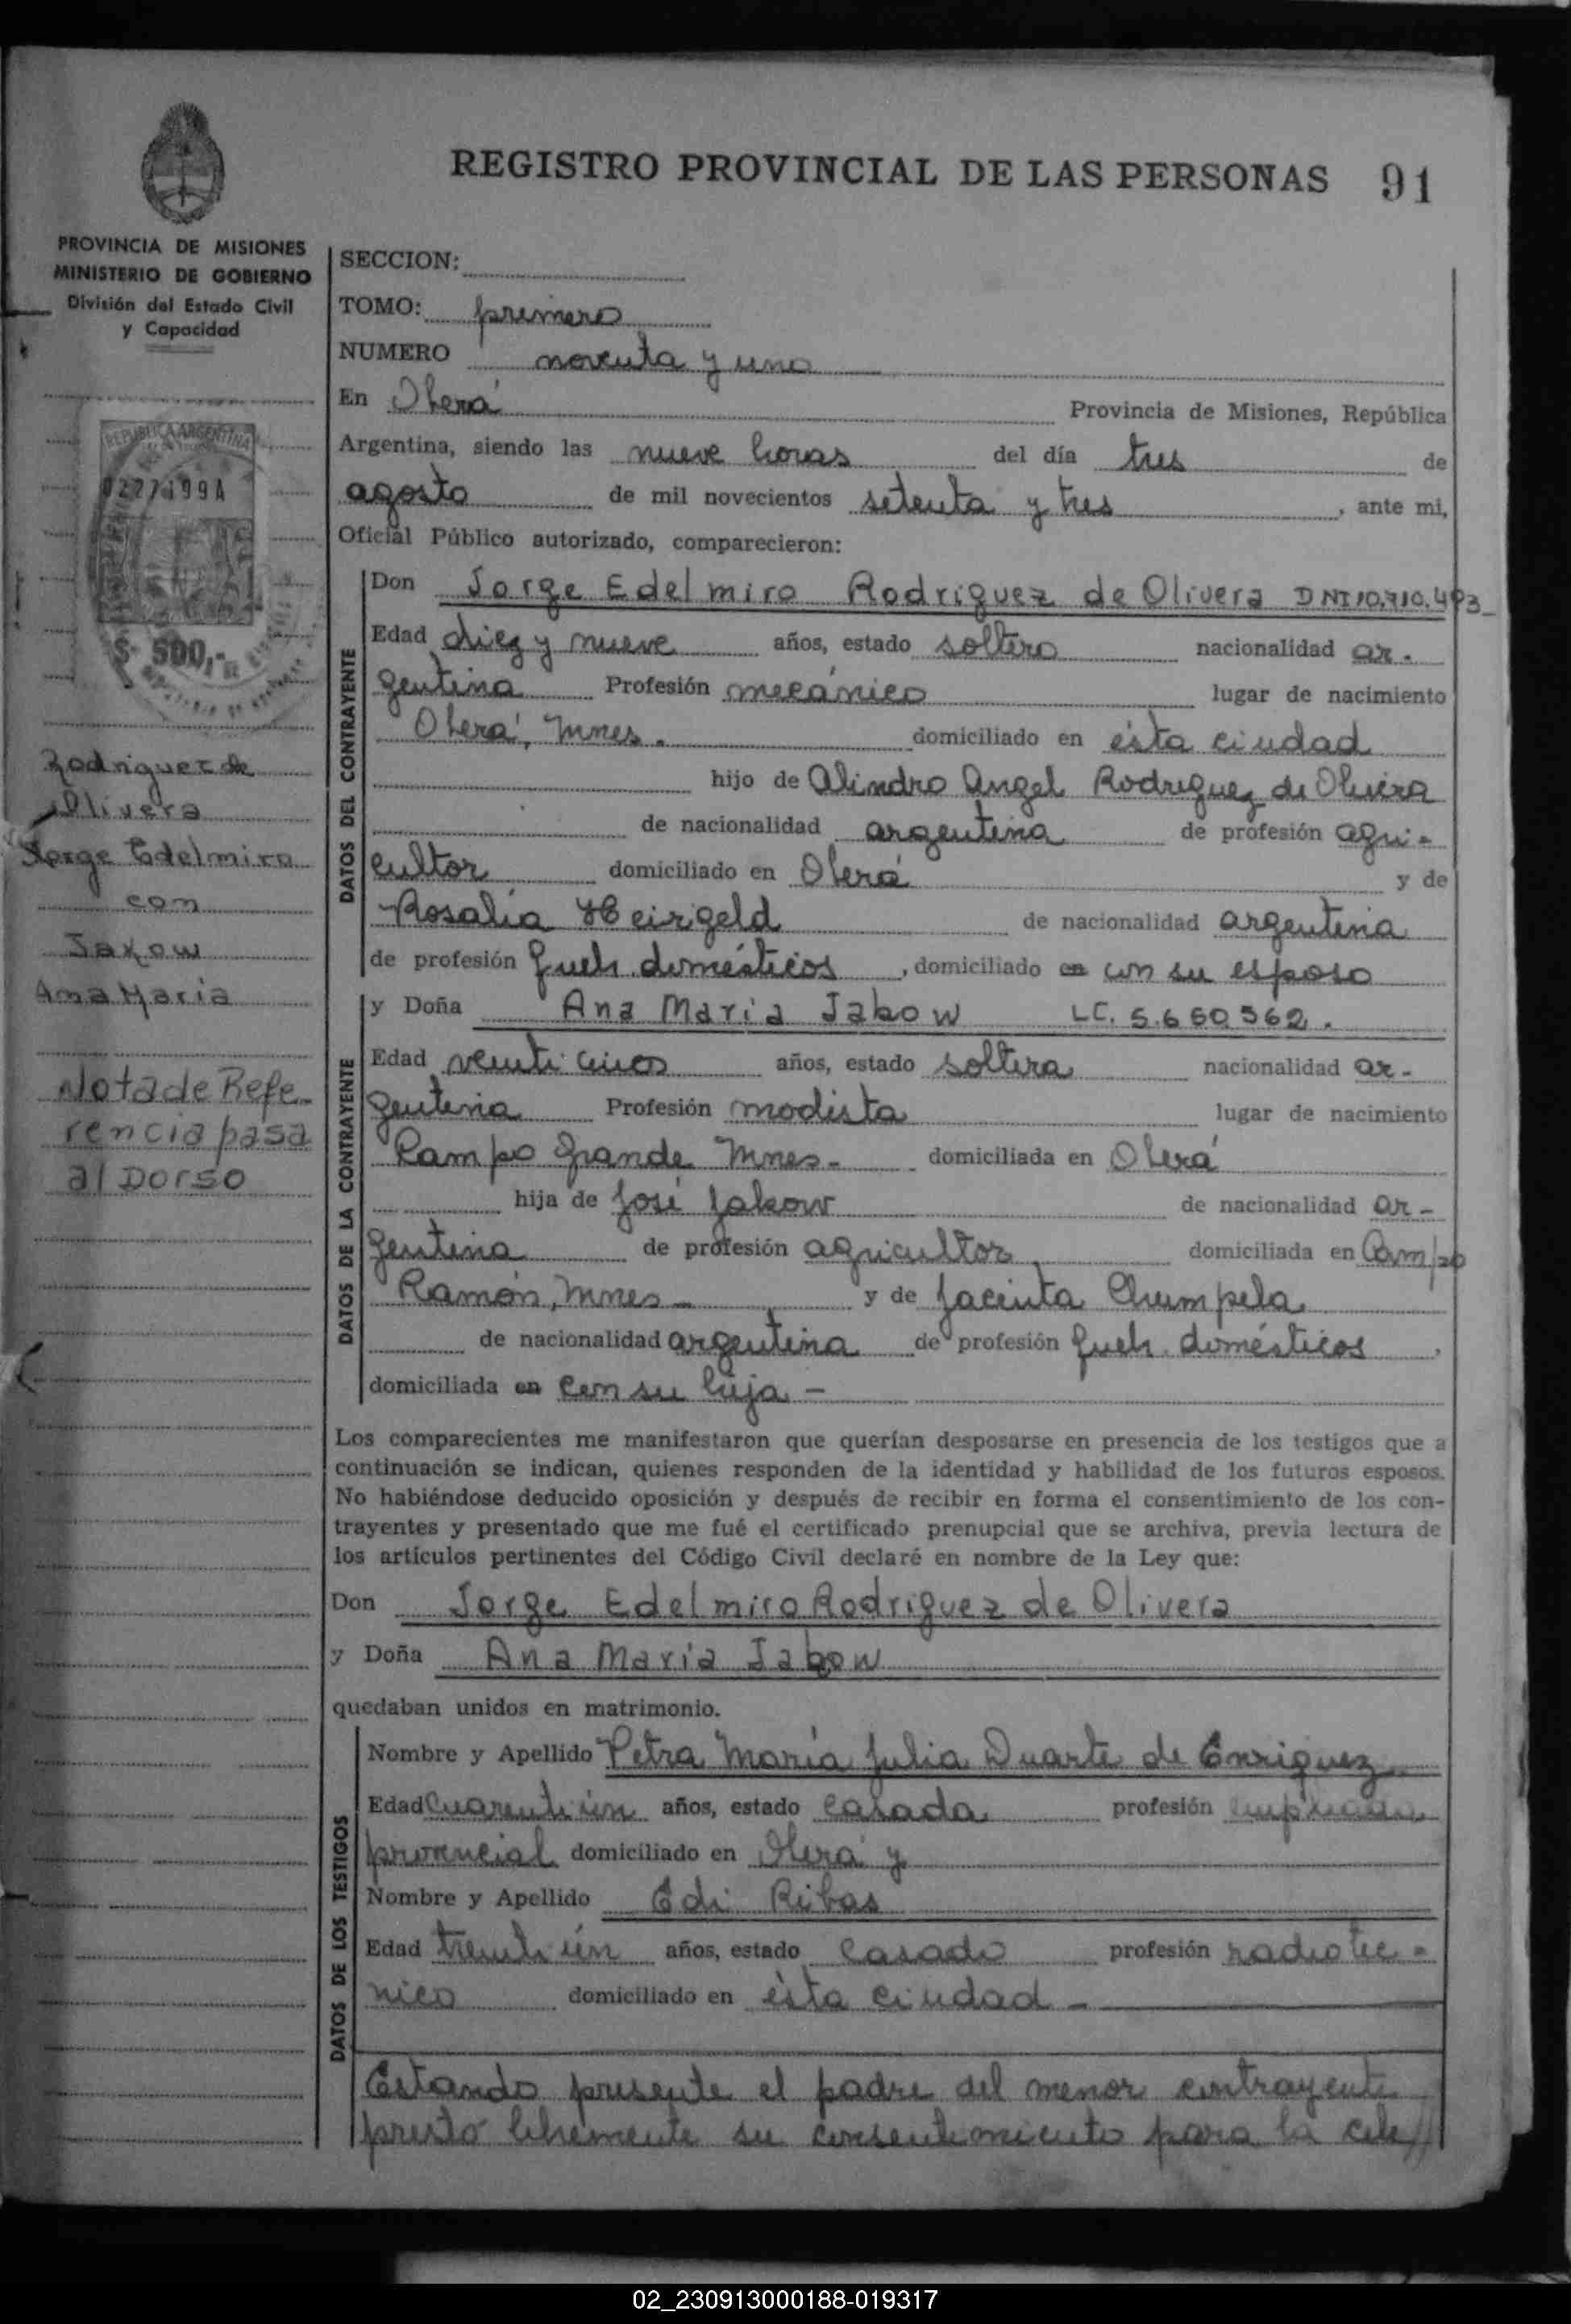 REGISTRO PROVINCIAL DE LAS PERSONAS 91
PROVINCIA DE MISIONES
MINISTERIO DE GOBIERNO
División del Estado Civil
y Capacidad
REPUBLICA ARGENTINA
0227199A
$ 500,-
Rodriguez de
Olivera
Jorge Edelmiro
con
Jakow
Ana Maria
Nota de Refe-
rencia pasa
al Dorso
SECCION:
TOMO: primero
NUMERO noventa y uno
En Oberá Provincia de Misiones, República
Argentina, siendo las nueve horas del día tres de
agosto de mil novecientos setenta y tres, ante mi,
Oficial Público autorizado, comparecieron:
DATOS DEL CONTRAYENTE
Don Jorge Edelmiro Rodriguez de Olivera DNI 10.710.493
Edad diez y nueve años, estado soltero nacionalidad ar-
gentina Profesión mecánico lugar de nacimiento
Oberá, Mnes. domiciliado en ésta ciudad
hijo de Alindro Angel Rodriguez de Olivera
de nacionalidad argentina de profesión agri-
cultor domiciliado en Oberá y de
Rosalía Heirigeld de nacionalidad argentina
de profesión queh. domésticos, domiciliado en con su esposo
DATOS DE LA CONTRAYENTE
y Doña Ana Maria Jakow LC. 5.650.562.
Edad veinti cinco años, estado soltera nacionalidad ar-
gentina Profesión modista lugar de nacimiento
Campo Grande Mnes- domiciliada en Oberá
hija de José Jakow de nacionalidad ar-
gentina de profesión agricultor domiciliada en Campo
Ramón, Mnes- y de Jacinta Chumpela
de nacionalidad argentina de profesión queh. domésticos,
domiciliada en con su hija -
Los comparecientes me manifestaron que querían desposarse en presencia de los testigos que a
continuación se indican, quienes responden de la identidad y habilidad de los futuros esposos.
No habiéndose deducido oposición y después de recibir en forma el consentimiento de los con-
trayentes y presentado que me fué el certificado prenupcial que se archiva, previa lectura de
los artículos pertinentes del Código Civil declaré en nombre de la Ley que:
Don Jorge Edelmiro Rodriguez de Olivera
y Doña Ana Maria Jakow
quedaban unidos en matrimonio.
DATOS DE LOS TESTIGOS
Nombre y Apellido Petra María Julia Duarte de Enriquez
Edad cuarenti ún años, estado casada profesión empleada
provincial domiciliado en Oberá y
Nombre y Apellido Edi Ribas
Edad treinti ún años, estado casado profesión radiotéc-
nico domiciliado en ésta ciudad -
Estando presente el padre del menor contrayente
prestó libremente su consentimiento para la cele//
02_230913000188-019317